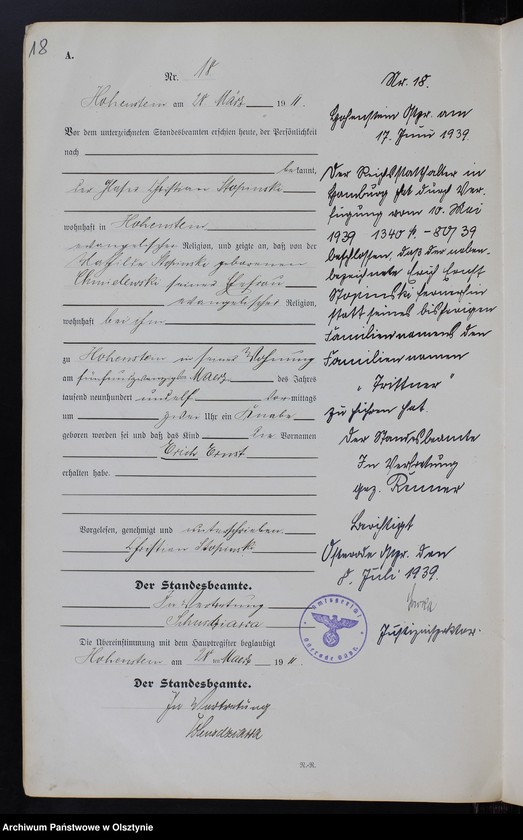 18
A.
Nr. 18
Hohenstein am 28 März 1911.
Vor dem unterzeichneten Standesbeamten erschien heute, der Persönlichkeit
nach
bekannt,
Christian Stopinski
wohnhaft in Hohenstein
evangelischer Religion, und zeigte an, daß von der
Mathilde Stopinski geborenen
Chmielewski seiner Ehefrau
evangelischer Religion,
wohnhaft bei ihm
zu Hohenstein in seiner Wohnung
am fünfundzwanzigsten Maerz des Jahres
tausend neunhundert und elf vormittags
um Uhr ein Knabe
geboren worden sei und daß das Kind die Vornamen
Erich Ernst
erhalten habe.
Vorgelesen, genehmigt und unterschrieben
Christian Stopinski
Der Standesbeamte.
In Vertretung
Die Übereinstimmung mit dem Hauptregister beglaubigt
Hohenstein am 28 ten Maerz 1911.
Der Standesbeamte.
In Vertretung
N.-R.
Nr. 18.
Hohenstein Ostpr. am
17. Juni 1939.
Der Reichsstatthalter in
Hamburg hat durch Ver-
fügung vom 10. Mai
1939 1340 - 80/39
beschlossen, daß der neben-
bezeichnete Erich Ernst
Stopinski fernerhin
statt seines bisherigen
Familiennamens den
Familiennamen
„Trittner"
zu führen hat.
Der Standesbeamte
In Vertretung
gez. Renner
Berichtigt
Osterode Ostpr. den
8. Juli 1939.
Justizinspektor.
Amtsgericht
Osterode Ostpr.
Archiwum Państwowe w Olsztynie